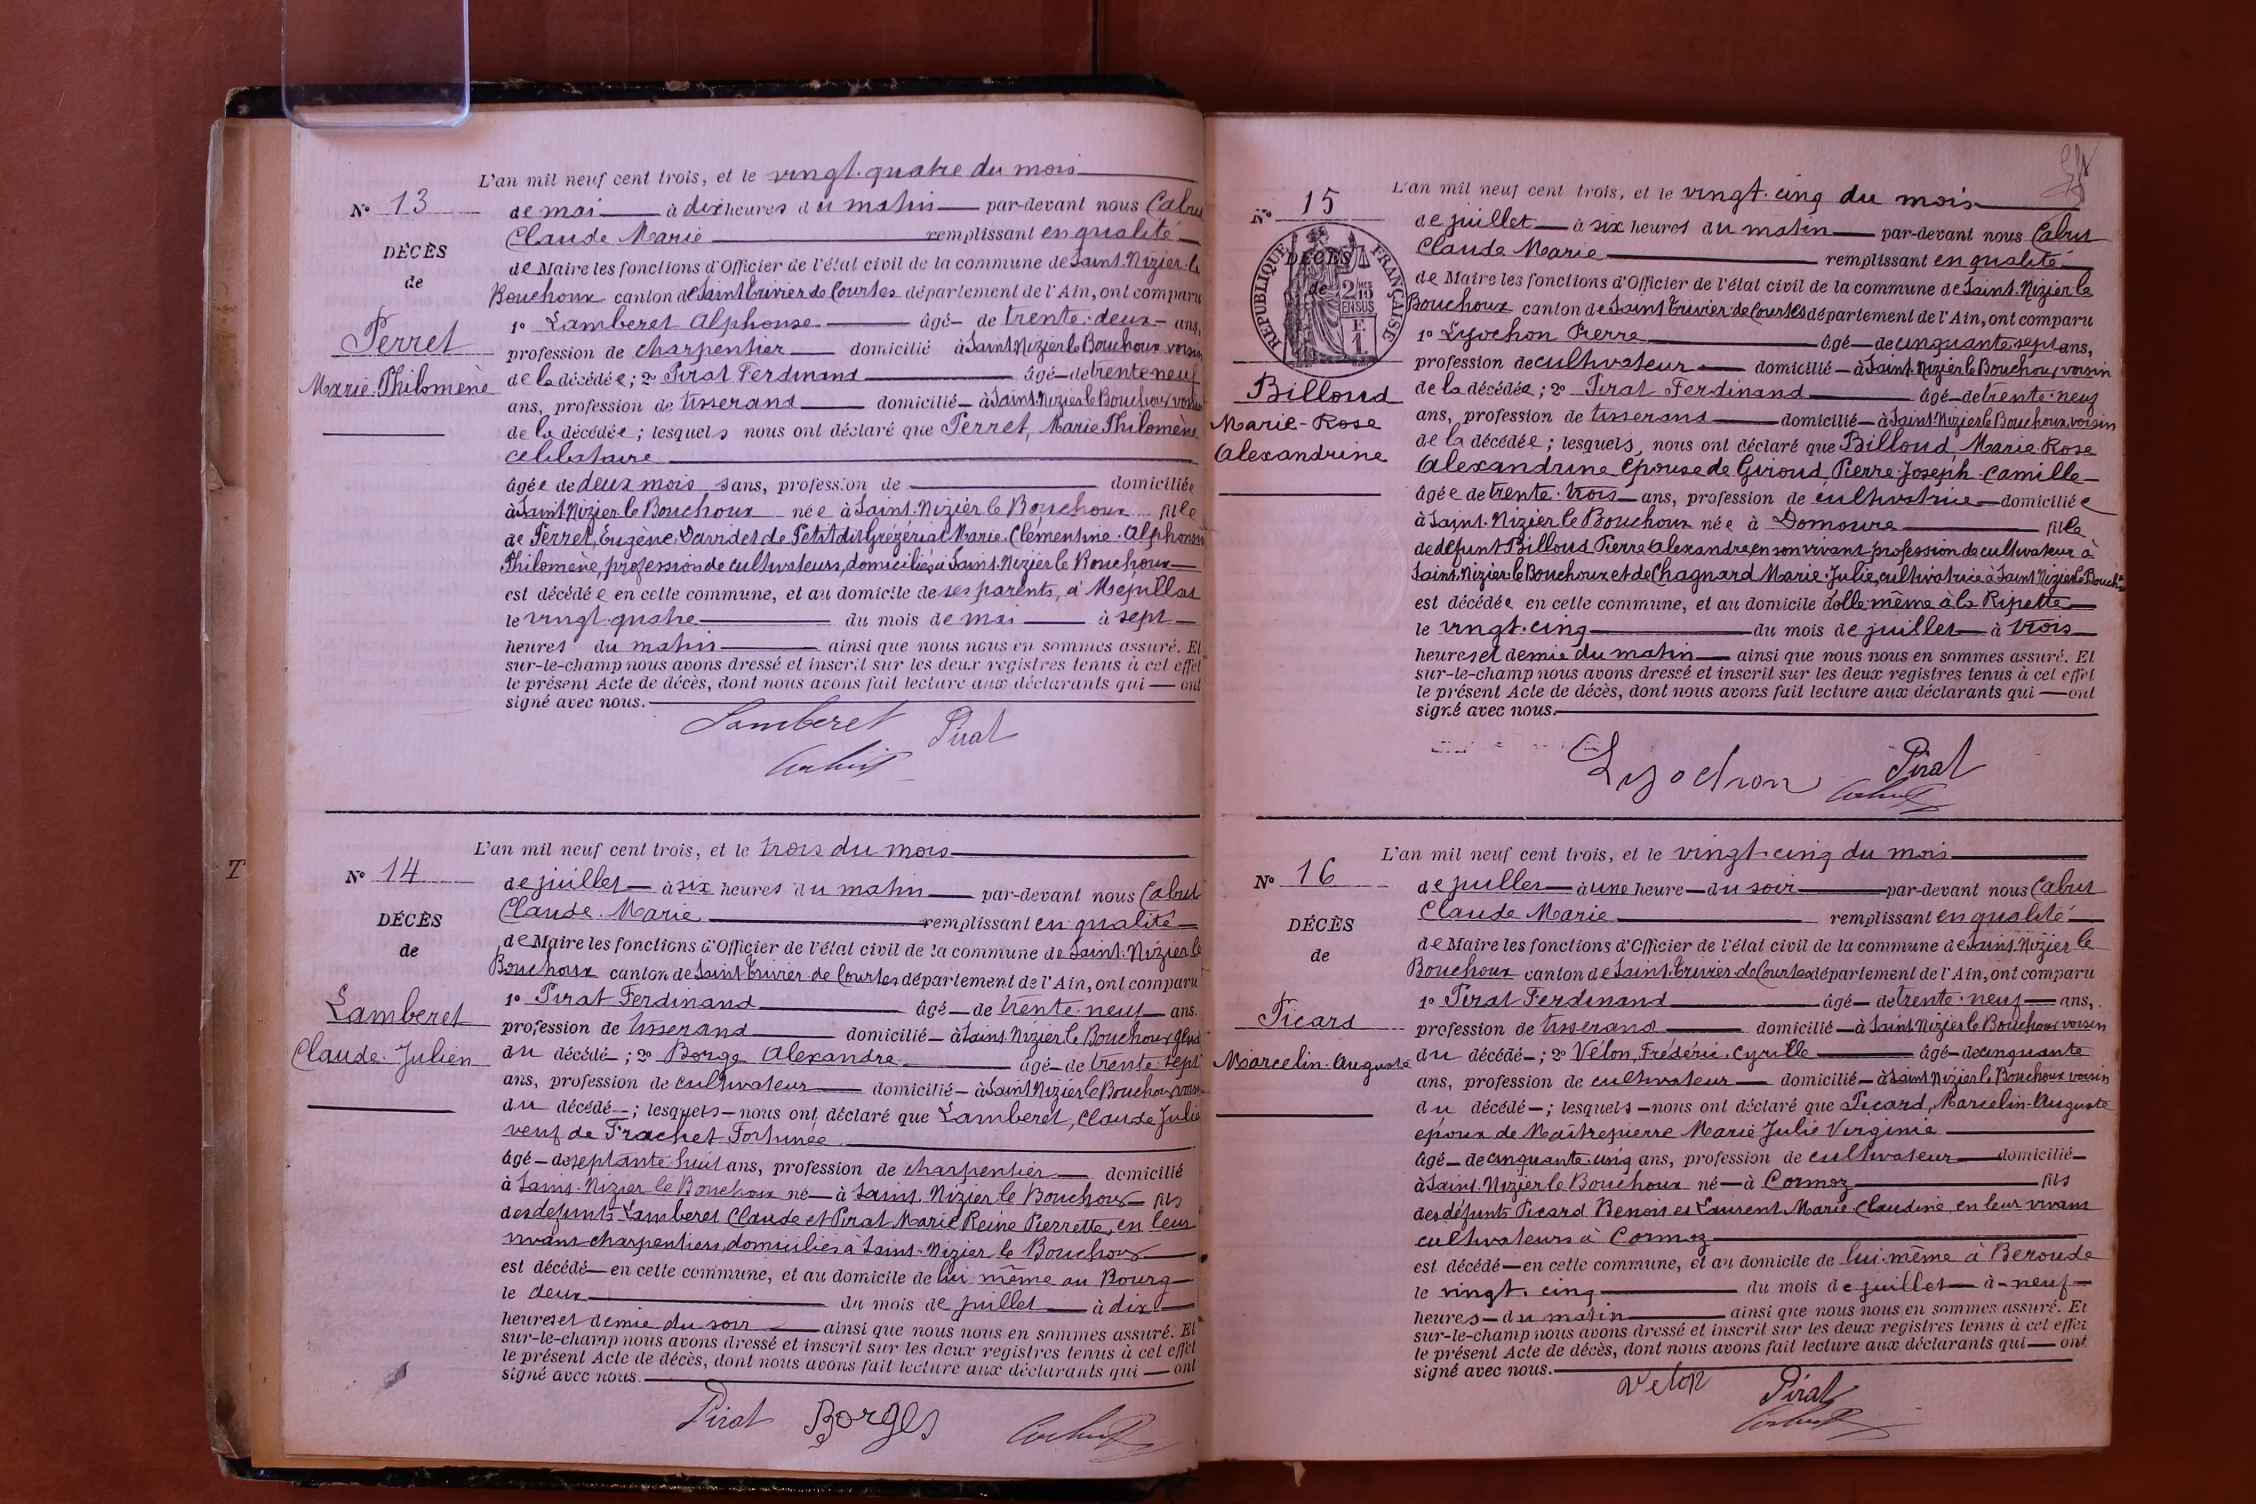 L'an mil neuf cent trois, et le vingt-quatre du mois
No 13
de mai à dix heures du matin par-devant nous Cabut
Claude Marie remplissant en qualité
DÉCÈS
de Maire les fonctions d'Officier de l'état civil de la commune de Saint-Nizier-le
de
Bouchoux canton de Saint Trivier de Courtes département de l'Ain, ont comparu
1o Lamberet Alphonse âgé de trente-deux ans,
Perret
profession de charpentier domicilié à Saint Nizier le Bouchoux voisin
Marie-Philomène
de la décédée; 2o Pirat Ferdinand âgé de trente neuf
ans, profession de tisserand domicilié à Saint Nizier le Bouchoux voisin
de la décédée; lesquels nous ont déclaré que Perret, Marie Philomène
célibataire
âgée de deux mois sans, profession de domiciliée
à Saint Nizier le Bouchoux née à Saint-Nizier le Bouchoux fille
de Perret, Eugène, David et de Petit dit Grézériat Marie-Clémentine-Alphonsine
Philomène, profession de cultivateurs, domiciliés à Saint-Nizier le Bouchoux
est décédée en cette commune, et au domicile de ses parents, à Mépillat
le vingt-quatre du mois de mai à sept
heures du matin ainsi que nous nous en sommes assuré. Et
sur-le-champ nous avons dressé et inscrit sur les deux registres tenus à cet effet
le présent Acte de décès, dont nous avons fait lecture aux déclarants qui ont
signé avec nous.
Lamberet Pirat
L'an mil neuf cent trois, et le trois du mois
No 14
de juillet à six heures du matin par-devant nous Cabut
Claude-Marie remplissant en qualité
DÉCÈS
de Maire les fonctions d'Officier de l'état civil de la commune de Saint-Nizier le
de
Bouchoux canton de Saint Trivier de Courtes département de l'Ain, ont comparu
1o Pirat Ferdinand âgé de trente neuf ans.
Lamberet
profession de tisserand domicilié à Saint Nizier le Bouchoux
Claude-Julien
du décédé; 2o Borge Alexandre âgé de trente sept
ans, profession de cultivateur domicilié à Saint Nizier le Bouchoux voisin
du décédé; lesquels nous ont déclaré que Lamberet, Claude Julien
veuf de Trachet Fortunée
âgé de septante huit ans, profession de charpentier domicilié
à Saint-Nizier le Bouchoux né à Saint Nizier le Bouchoux fils
des défunts Lamberet Claude et Pirat Marie Reine Pierrette, en leur
vivant charpentiers, domiciliés à Saint-Nizier le Bouchoux
est décédé en cette commune, et au domicile de lui même au Bourg
le deux du mois de juillet à dix
heures et demie du soir ainsi que nous nous en sommes assuré. Et
sur-le-champ nous avons dressé et inscrit sur les deux registres tenus à cet effet
le présent Acte de décès, dont nous avons fait lecture aux déclarants qui ont
signé avec nous.
Pirat Borges
L'an mil neuf cent trois, et le vingt-cinq du mois
No 15
de juillet à six heures du matin par-devant nous Cabut
Claude Marie remplissant en qualité
RÉPUBLIQUE FRANÇAISE
DÉCÈS
de Maire les fonctions d'Officier de l'état civil de la commune de Saint-Nizier le
de
Bouchoux canton de Saint Trivier de Courtes département de l'Ain, ont comparu
1o Lyochon Pierre âgé de cinquante sept ans,
profession de cultivateur domicilié à Saint-Nizier le Bouchoux voisin
Billoud
de la décédée; 2o Pirat Ferdinand âgé de trente-neuf
Marie-Rose
ans, profession de tisserand domicilié à Saint-Nizier le Bouchoux, voisin
Alexandrine
de la décédée; lesquels nous ont déclaré que Billoud, Marie-Rose
Alexandrine épouse de Giroud, Pierre-Joseph-Camille
âgée de trente-trois ans, profession de cultivatrice domiciliée
à Saint-Nizier le Bouchoux née à Domsure fille
de défunt Billoud Pierre Alexandre, en son vivant profession de cultivateur à
Saint-Nizier-le Bouchoux et de Chagnard Marie-Julie, cultivatrice à Saint Nizier le Bouchx
est décédée en cette commune, et au domicile d'elle-même à la Ripette
le vingt-cinq du mois de juillet à trois
heures et demie du matin ainsi que nous nous en sommes assuré. Et
sur-le-champ nous avons dressé et inscrit sur les deux registres tenus à cet effet
le présent Acte de décès, dont nous avons fait lecture aux déclarants qui ont
signé avec nous.
Lyochon Pirat
L'an mil neuf cent trois, et le vingt-cinq du mois
No 16
de juillet à une heure du soir par-devant nous Cabut
Claude Marie remplissant en qualité
DÉCÈS
de Maire les fonctions d'Officier de l'état civil de la commune de Saint-Nizier le
de
Bouchoux canton de Saint-Trivier de Courtes département de l'Ain, ont comparu
1o Pirat Ferdinand âgé de trente-neuf ans,
Picard
profession de tisserand domicilié à Saint Nizier le Bouchoux voisin
Marcelin-Auguste
du décédé; 2o Vélon, Frédéric, Cyrille âgé de cinquante
ans, profession de cultivateur domicilié à Saint Nizier le Bouchoux voisin
du décédé; lesquels nous ont déclaré que Picard, Marcelin-Auguste
époux de Maîtrepierre Marie Julie Virginie
âgé de cinquante cinq ans, profession de cultivateur domicilié
à Saint-Nizier le Bouchoux né à Cormoz fils
des défunts Picard Benoit et Laurent Marie Claudine, en leur vivant
cultivateurs à Cormoz
est décédé en cette commune, et au domicile de lui-même à Beroude
le vingt-cinq du mois de juillet à neuf
heures du matin ainsi que nous nous en sommes assuré. Et
sur-le-champ nous avons dressé et inscrit sur les deux registres tenus à cet effet
le présent Acte de décès, dont nous avons fait lecture aux déclarants qui ont
signé avec nous.
Velon Pirat